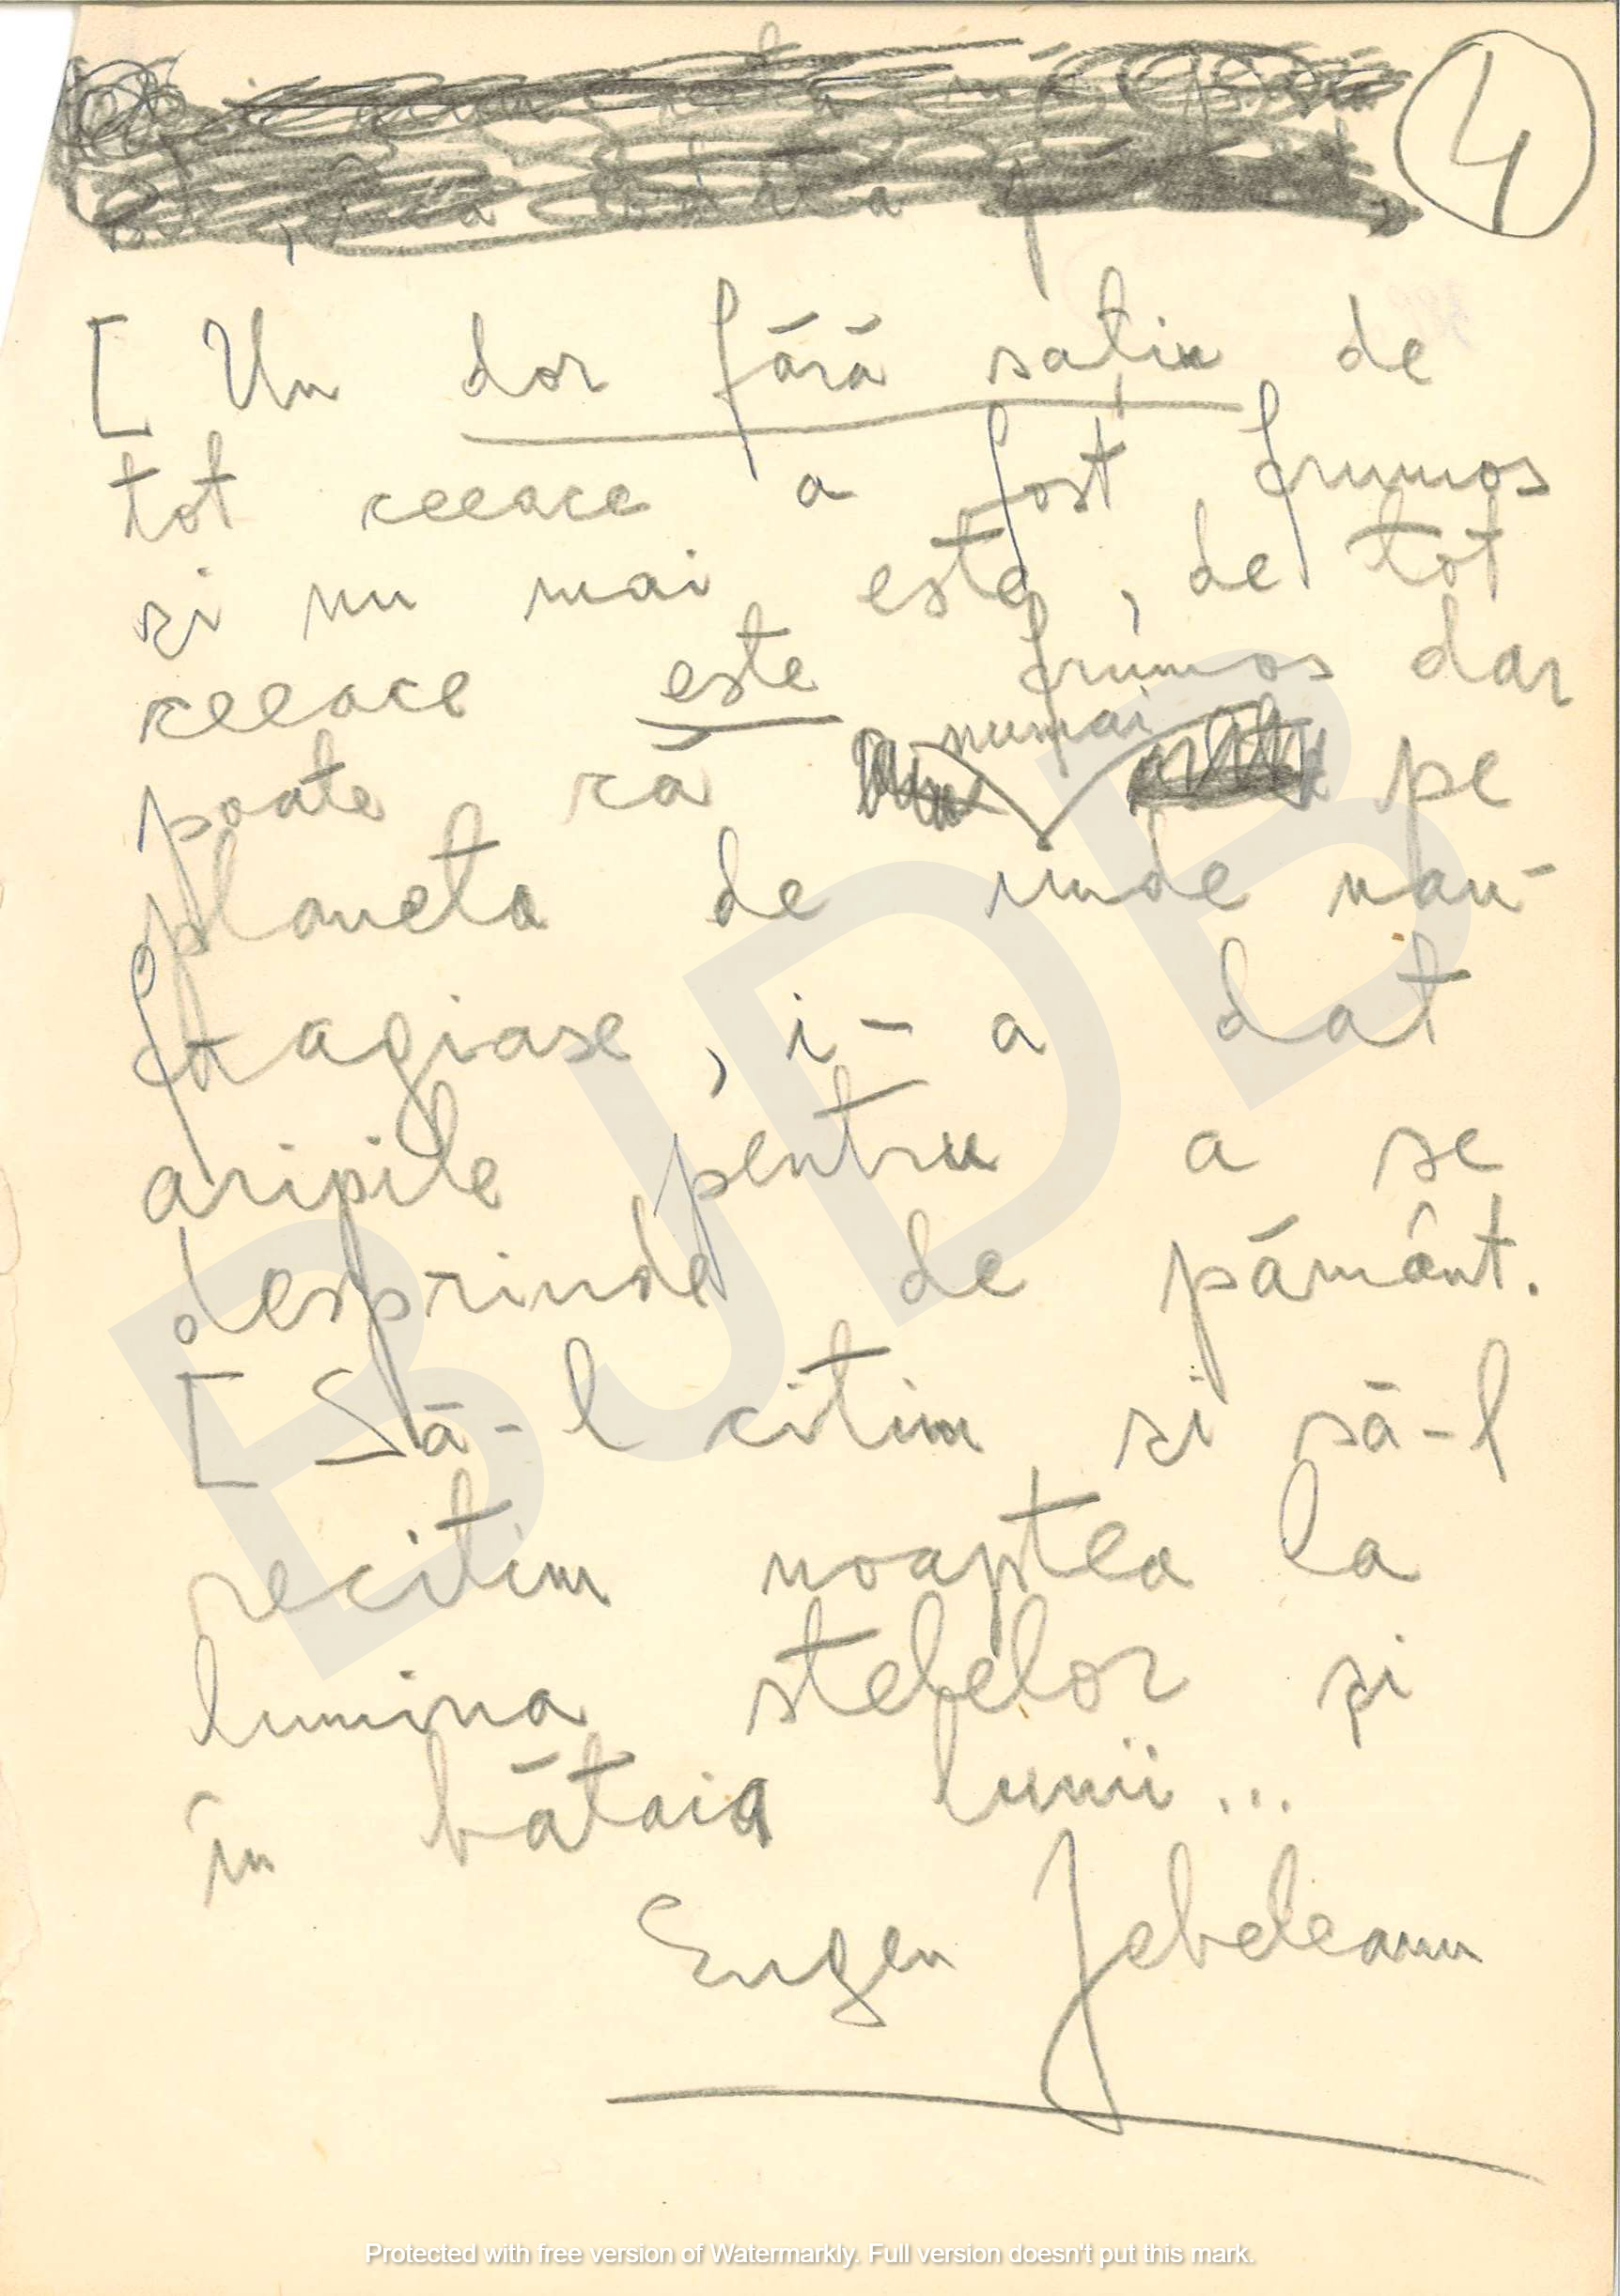 4
[ Un dor fără sațiu de
tot ceeace a fost frumos
și nu mai este, de tot
ceeace este frumos dar
numai
poate că pe
planeta de unde nau-
fragiase, i-a dat
aripile pentru a se
desprinde de pământ.
[ Să-l citim și să-l
recitim noaptea la
lumina stelelor și
în bătaia lunii...
Eugen Jebeleanu
BJDB
Protected with free version of Watermarkly. Full version doesn't put this mark.